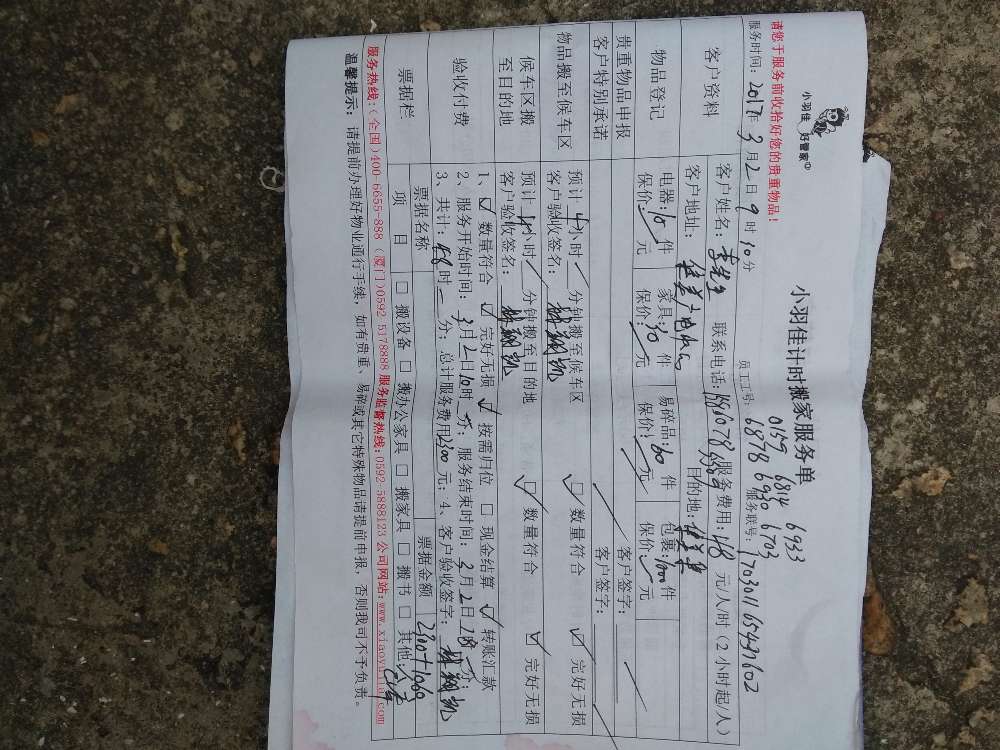 小羽佳 好管家
小羽佳计时搬家服务单
请您于服务前收拾好您的贵重物品!
员工工号: 0159 6814 6933
6878 6930 6703
服务时间: 2017年 3 月 2 日 9 时 10 分
服务联号:
客户资料
客户姓名: 李先生 联系电话: 服务费用: 48 元/人/时(2小时起/人)
客户地址: 目的地:
物品登记
电器: 10 件 家具: 30 件 易碎品: 60 件 包裹: 1000 件
保价: 元 保价: 元 保价: 元 保价: 元
贵重物品申报 客户签字:
客户特别承诺 客户签字:
物品搬至候车区
预计 4 小时 分钟搬至候车区 □ 数量符合 ☑ 完好无损
客户验收签名:
候车区搬至目的地
预计 4 小时 分钟搬至目的地 □ 数量符合 ☑ 完好无损
客户验收签名:
验收付费
1、☑ 数量符合 ☑ 完好无损 ☑ 按需归位 □ 现金结算 ☑ 转账汇款
2、服务开始时间: 3 月 2 日 10 时 分; 服务结束时间: 3 月 2 日 18 时 分;
3、共计: 时 分; 总计服务费用 2300 元; 4、客户验收签字:
票据栏
票据名称 票据金额 2300+1060
项 目 □ 搬设备 □ 搬办公家具 □ 搬家具 □ 搬书 □ 其他:
服务热线:(全国)400-6655-888(厦门)0592-5178888 服务监督热线:0592-5888123 公司网站:www.xiaoyujia.com
温馨提示: 请提前办理好物业通行手续,如有贵重、易碎或其它特殊物品请提前申报,否则我司不予负责。